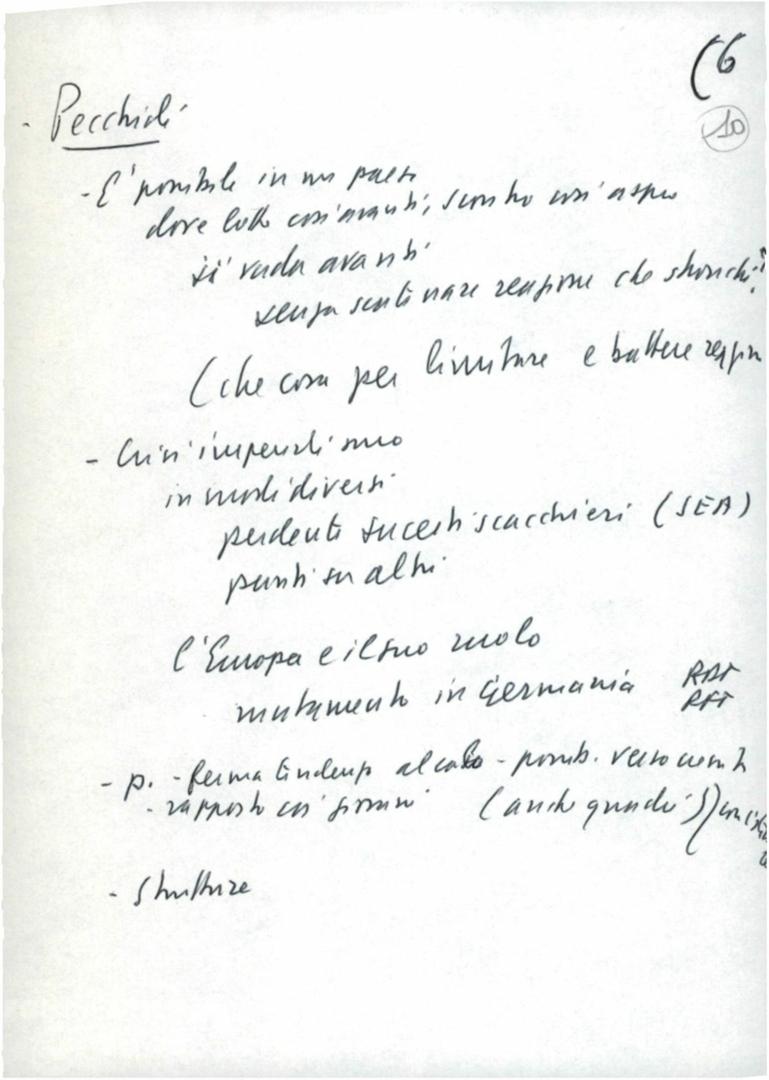 (6
10
- Pecchioli
- E' possibile in un paese
dove lotte così avanti, scontro così aspro
si vada avanti
senza scatenare reazione che stronchi?
(che cosa per limitare e battere reazion
- Crisi imperialismo
in modi diversi
perdente su certi scacchieri (SEA)
punti su altri
l'Europa e il suo ruolo
mutamento in Germania RDT
RFT
- p. - ferma tendenza al calo - possib. verso
- rapporto coi giovani (anche quadri)
- Strutture